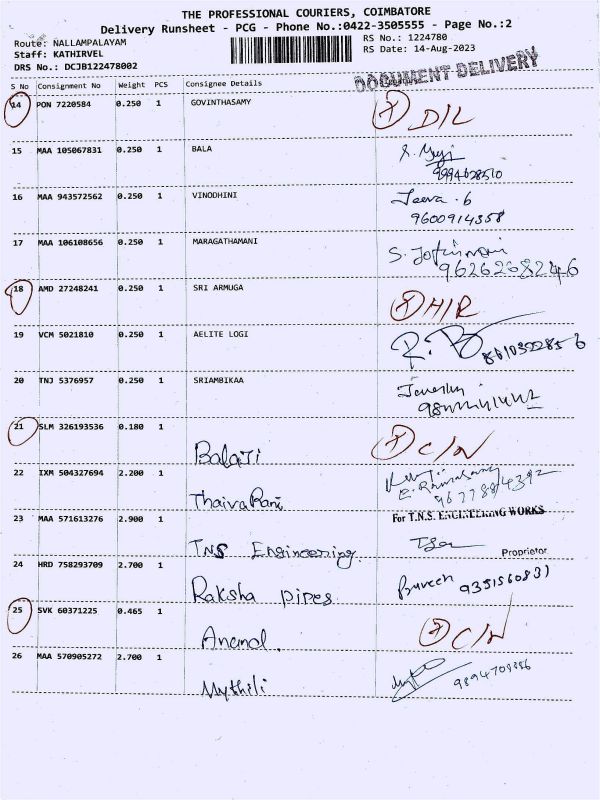 THE PROFESSIONAL COURIERS, COIMBATORE
Delivery Runsheet - PCG - Phone No.:0422-3505555 - Page No.:2
Route: NALLAMPALAYAM RS No.: 1224780
Staff: KATHIRVEL RS Date: 14-Aug-2023
DRS No.: DCJB122478002
DOCUMENT DELIVERY
S No Consignment No Weight PCS Consignee Details
14 PON 7220584 0.250 1 GOVINTHASAMY
D/L
15 MAA 105067831 0.250 1 BALA
9994628510
16 MAA 943572562 0.250 1 VINODHINI Jeeva . b
9600914358
17 MAA 106108656 0.250 1 MARAGATHAMANI
S.
9626268246
18 AMD 27248241 0.250 1 SRI ARMUGA
H/R
19 VCM 5021810 0.250 1 AELITE LOGI
20 TNJ 5376957 0.250 1 SRIAMBIKAA
21 SLM 326193536 0.180 1
Balaji C/N
22 IXM 504327694 2.200 1
ThaivaRani
23 MAA 571613276 2.900 1 For T.N.S. ENGINEERING WORKS
TNS Engineering. Proprietor
24 HRD 758293709 2.700 1
Raksha pipes 9351560831
25 SVK 60371225 0.465 1
Anamol. C/N
26 MAA 570905272 2.700 1
Mythili